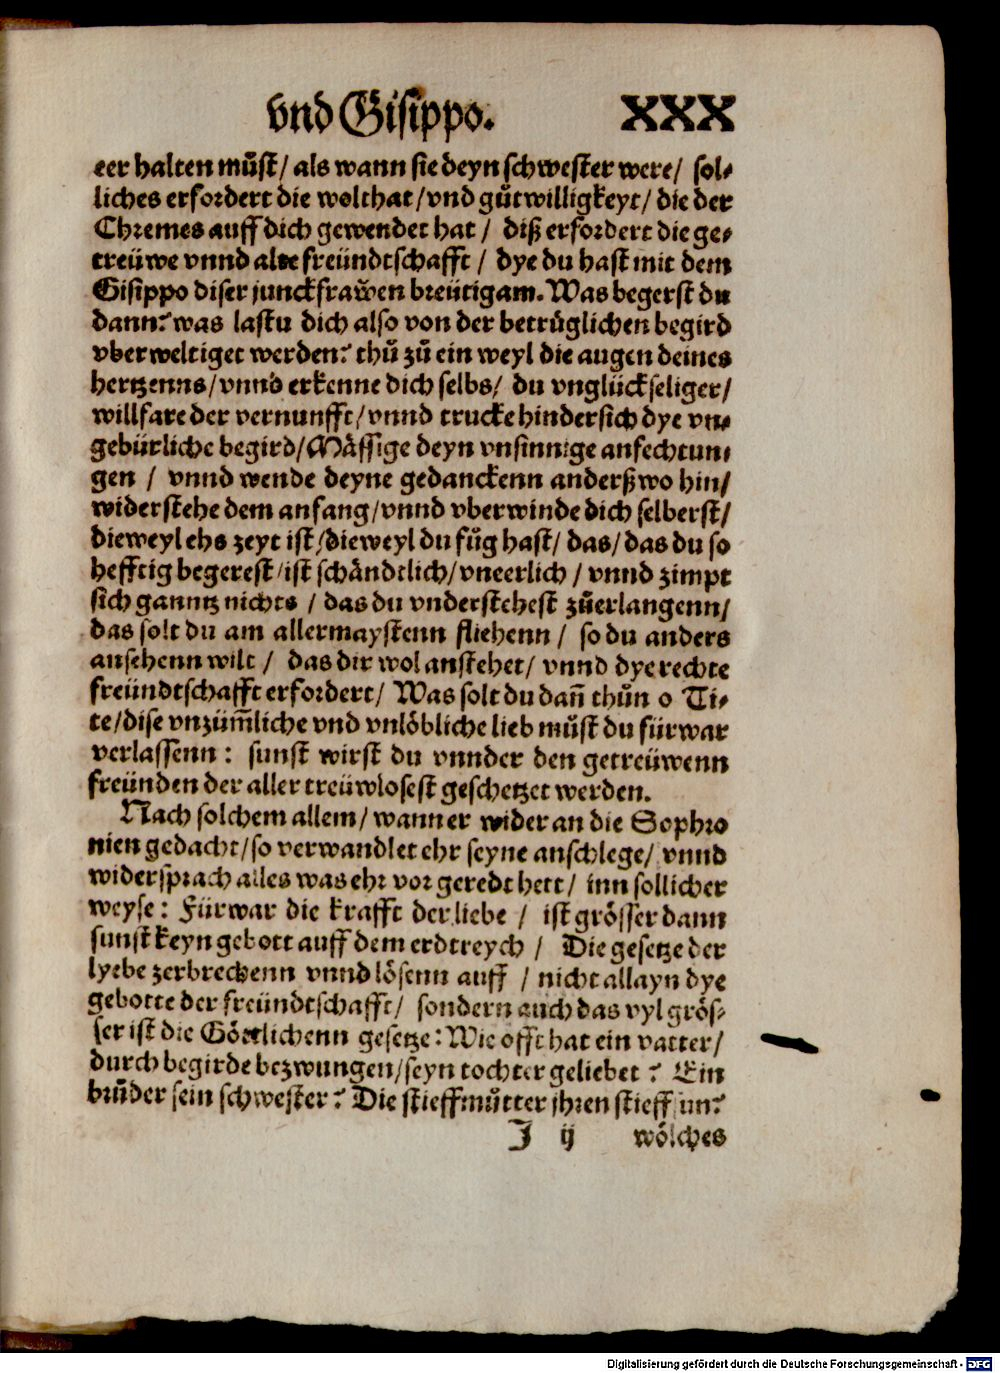 vnd Gisippo. XXX
eer halten můst/ als wann sie deyn schwester were/ sol-
liches erfordert die wolthat/vnd gůtwilligkeyt/ die der
Chremes auff dich gewendet hat/ diß erfordert die ge-
treüwe vnnd alte freündtschafft/ dye du hast mit dem
Gisippo diser junckfrawen breütigam. Was begerst du
dann? was lastu dich also von der betrüglichen begird
vberweltiget werden? thů zů ein weyl die augen deines
hertzenns/vnnd erkenne dich selbs/ du vnglückseliger/
willfare der vernunfft/vnnd trucke hindersich dye vn-
gebürliche begird/Mässige deyn vnsinnige anfechtun-
gen / vnnd wende deyne gedanckenn anderßwo hin/
widerstehe dem anfang/vnnd vberwinde dich selberst/
dieweyl ehs zeyt ist/dieweyl du fůg hast/ das/ das du so
hefftig begerest/ist schändtlich/vneerlich/ vnnd zimpt
sich ganntz nichts / das du vnderstehest zůerlangenn/
das solt du am allermaystenn fliehenn / so du anders
ansehenn wilt / das dir wol anstehet/ vnnd dye rechte
freündtschafft erfordert/ Was solt du dañ thůn o Ti-
te/dise vnzüm̃liche vnd vnlöbliche lieb můst du fürwar
verlassenn: sunst wirst du vnnder den getreüwenn
freünden der aller treüwlosest geschetzet werden.
Nach solchem allem/ wann er wider an die Sophro
nien gedacht/so verwandlet ehr seyne anschlege/ vnnd
widersprach alles was ehr vor geredt hett/ inn sollicher
weyse: Fürwar die krafft der liebe / ist grösser dann
sunst keyn gebott auff dem erdtreych / Die gesetze der
lyebe zerbrechenn vnnd lösenn auff / nicht allayn dye
gebotte der freündtschafft/ sondern auch das vyl grös-
ser ist die Göttlichenn gesetze: Wie offt hat ein vatter/
durch begirde bezwungen/seyn tochter geliebet? Ein
brůder sein schwester? Die stieffmůtter jhren stieffsun?
J ij wölches
Digitalisierung gefördert durch die Deutsche Forschungsgemeinschaft - DFG